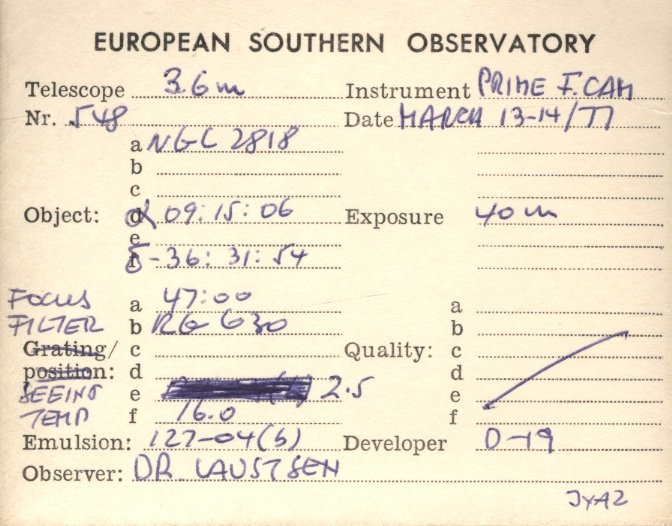 EUROPEAN SOUTHERN OBSERVATORY
Telescope 3.6m Instrument PRIME F. CAM
Nr. 548 Date MARCH 13-14/77
a NGC 2818
b
c
Object: α 09:15:06 Exposure 40m
e
δ -36:31:54
FOCUS a 47:00 a
FILTER b RG 630 b
Grating/ c Quality: c
position: d d
SEEING e 2.5 e
TEMP f 16.0 f
Emulsion: 127-04(b) Developer D-19
Observer: DR LAUSTSEN